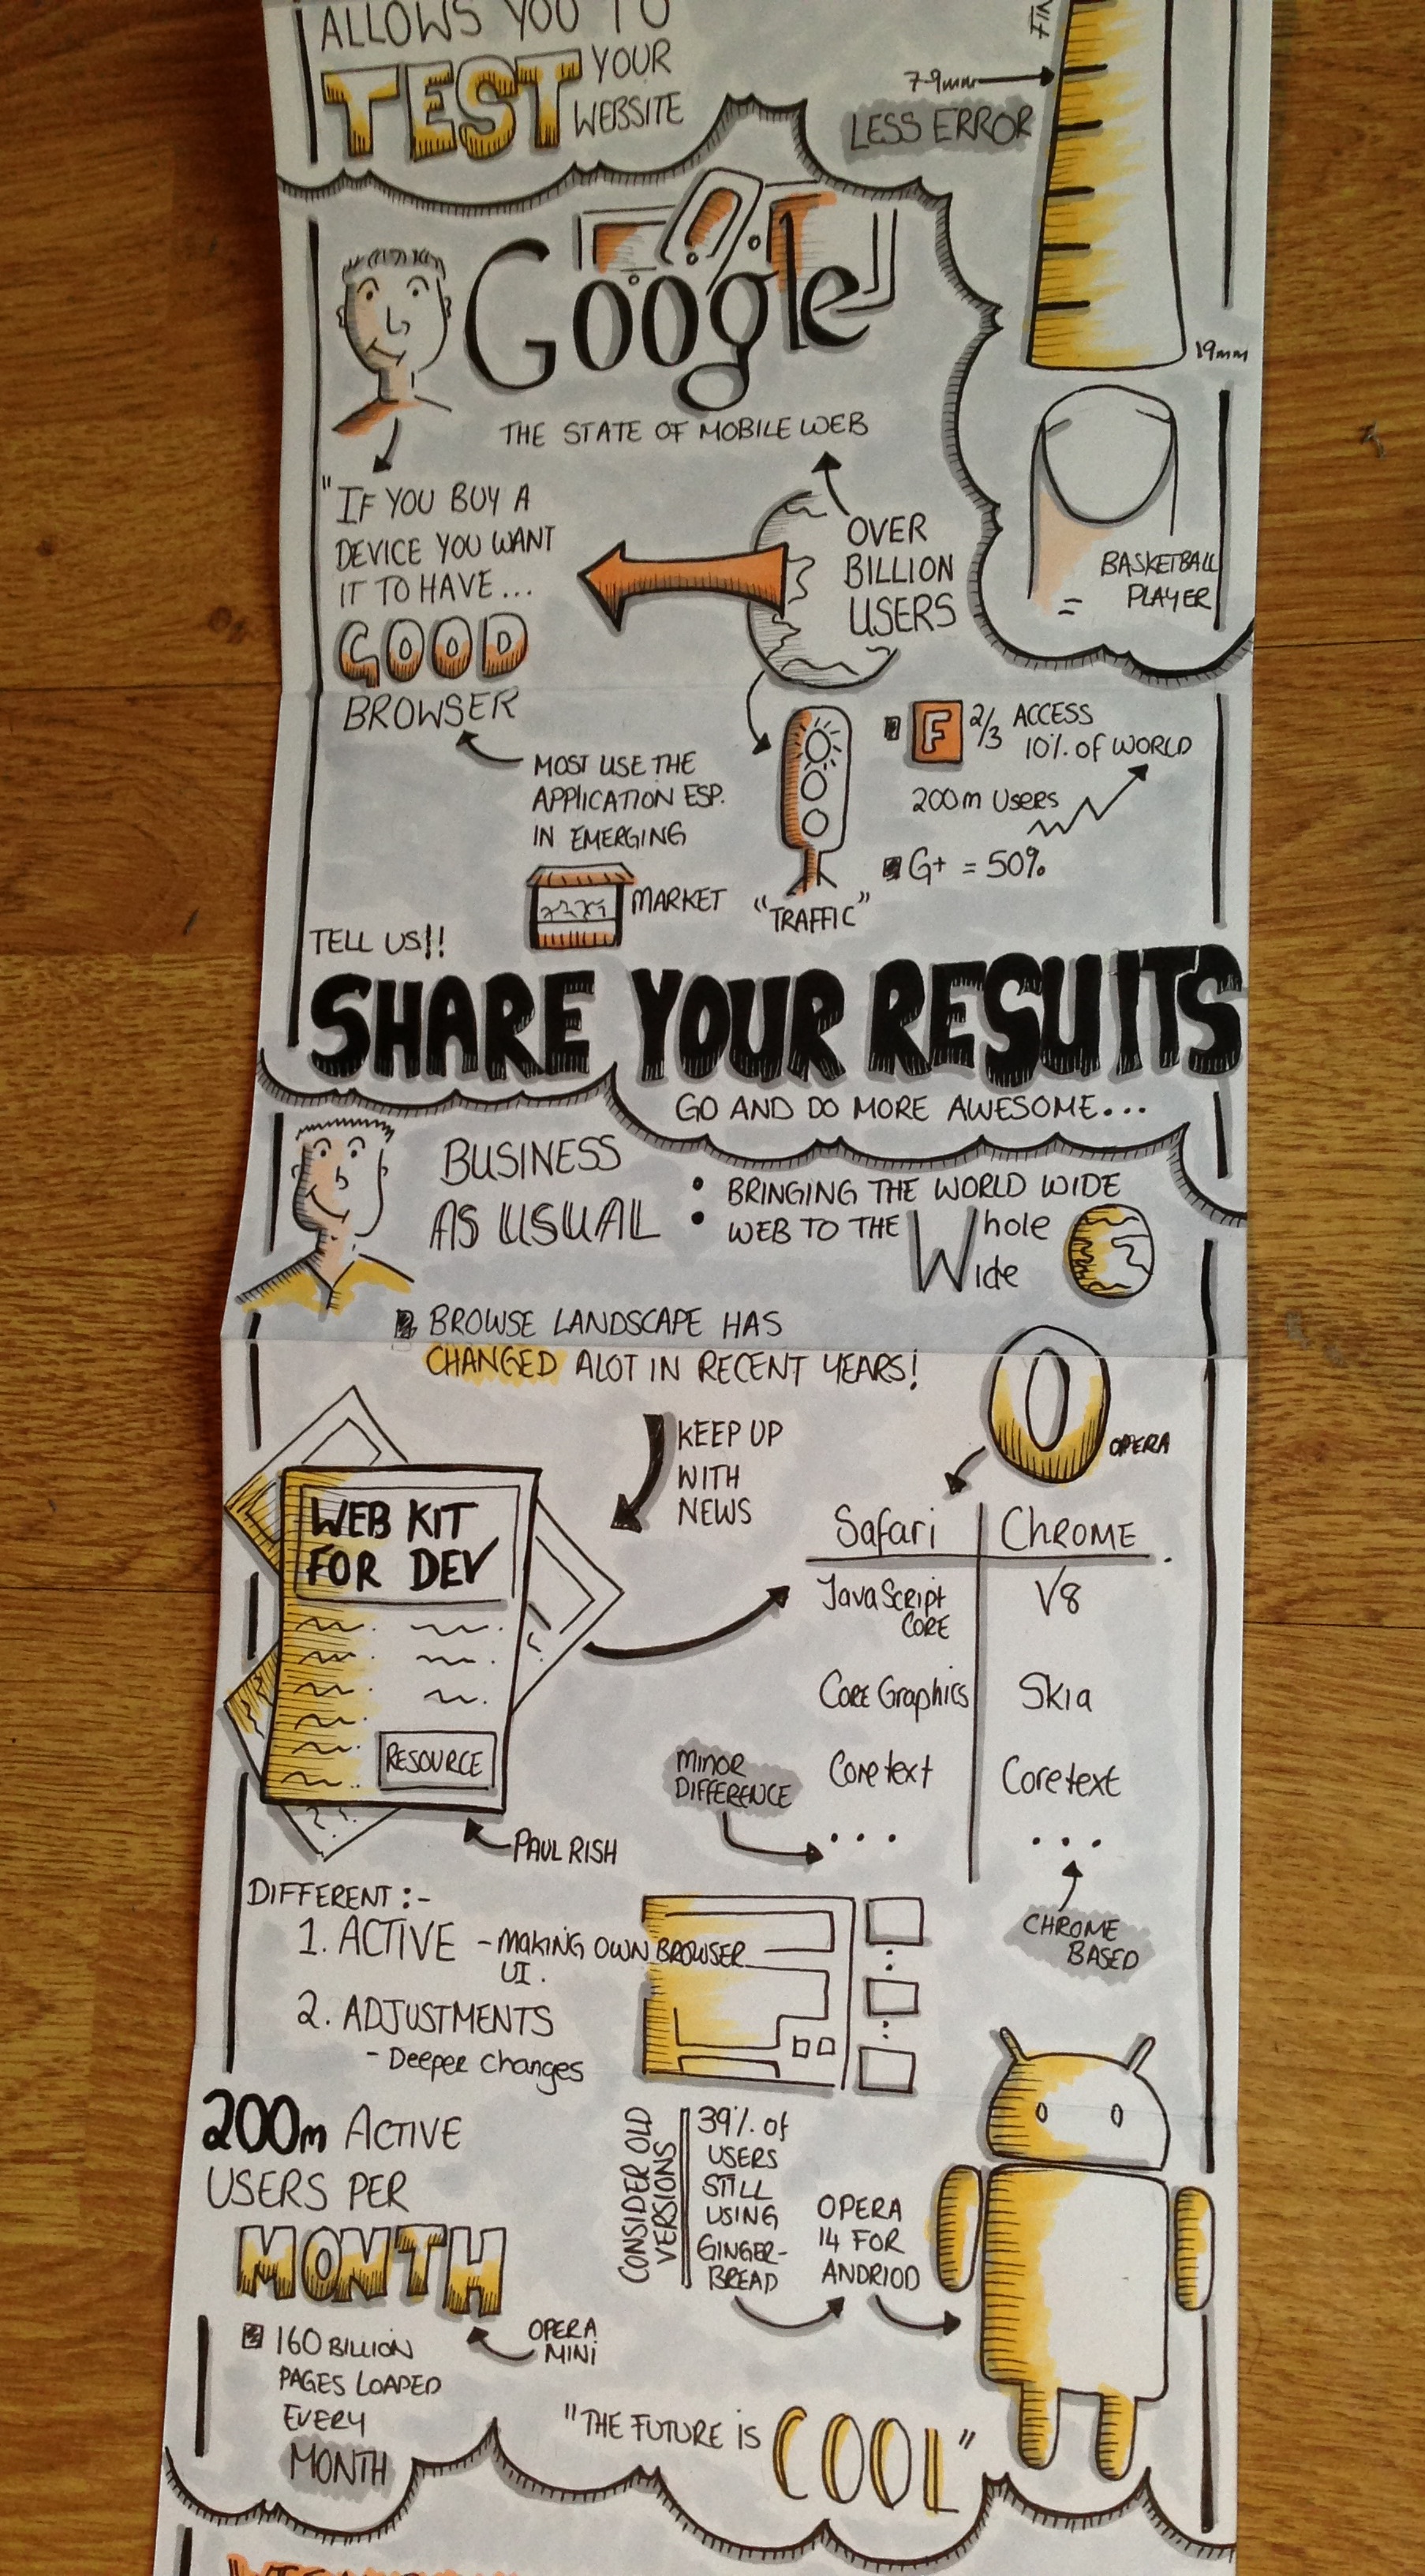 ALLOWS YOU TO
TEST YOUR
WEBSITE
7-9mm
LESS ERROR
19mm
BASKETBALL
PLAYER
Google
THE STATE OF MOBILE WEB
"IF YOU BUY A
DEVICE YOU WANT
IT TO HAVE...
GOOD
BROWSER
OVER
BILLION
USERS
MOST USE THE
APPLICATION ESP.
IN EMERGING
MARKET
"TRAFFIC"
F 2/3 ACCESS
10% OF WORLD
200m Users
G+ = 50%
TELL US!!
SHARE YOUR RESULTS
GO AND DO MORE AWESOME...
BUSINESS
AS USUAL
• BRINGING THE WORLD WIDE
• WEB TO THE Whole
Wide
BROWSE LANDSCAPE HAS
CHANGED ALOT IN RECENT YEARS!
KEEP UP
WITH
NEWS
O OPERA
WEB KIT
FOR DEV
RESOURCE
PAUL RISH
Safari | CHROME
JavaScript V8
CORE
Core Graphics Skia
MINOR
DIFFERENCE
Coretext Coretext
... ...
CHROME
BASED
DIFFERENT :-
1. ACTIVE - MAKING OWN BROWSER
UI.
2. ADJUSTMENTS
- Deeper Changes
200m ACTIVE
USERS PER
MONTH
OPERA
MINI
160 BILLION
PAGES LOADED
EVERY
MONTH
CONSIDER OLD
VERSIONS
39% of
USERS
STILL
USING
GINGER-
BREAD
OPERA
14 FOR
ANDRIOD
"THE FUTURE IS COOL"